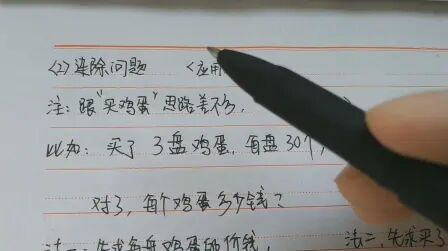 <2>连除问题 <应用
注:跟"买鸡蛋"思路差不多,
比如:买了3盘鸡蛋,每盘30个,
对了,每个鸡蛋多少钱?
法一:先求每盘鸡蛋的价钱, 法二:先求买了